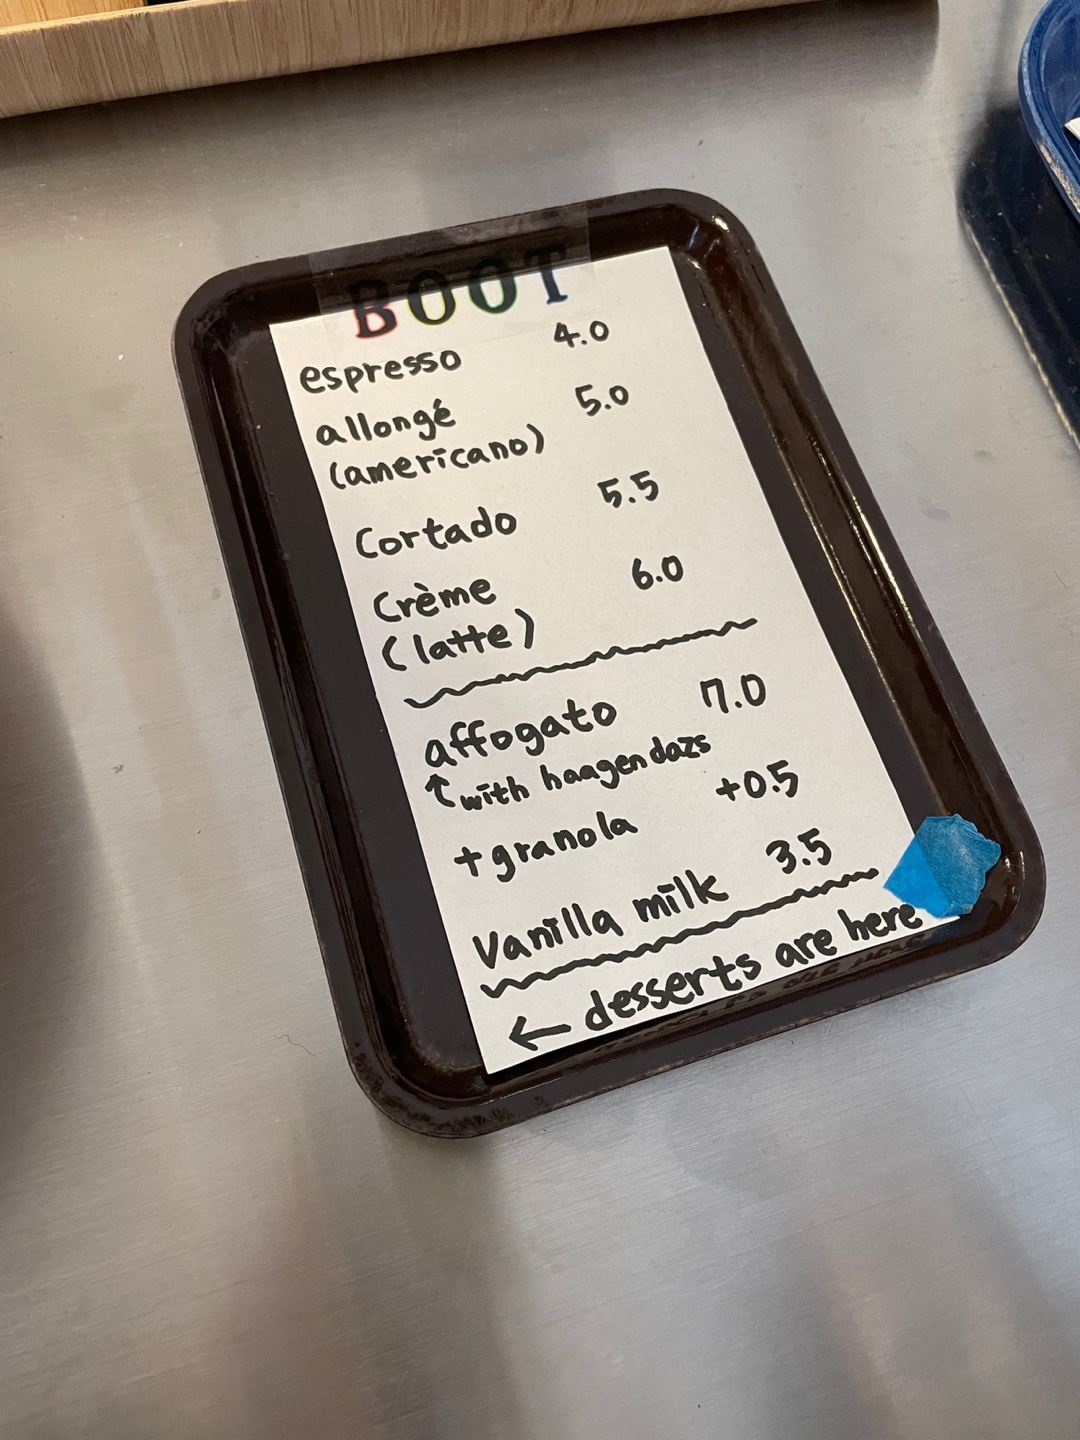 BOOT
espresso 4.0
allongé 5.0
(americano)
Cortado 5.5
Crème 6.0
(latte)
affogato 7.0
↑ with haagen dazs
+granola +0.5
Vanilla milk 3.5
← desserts are here